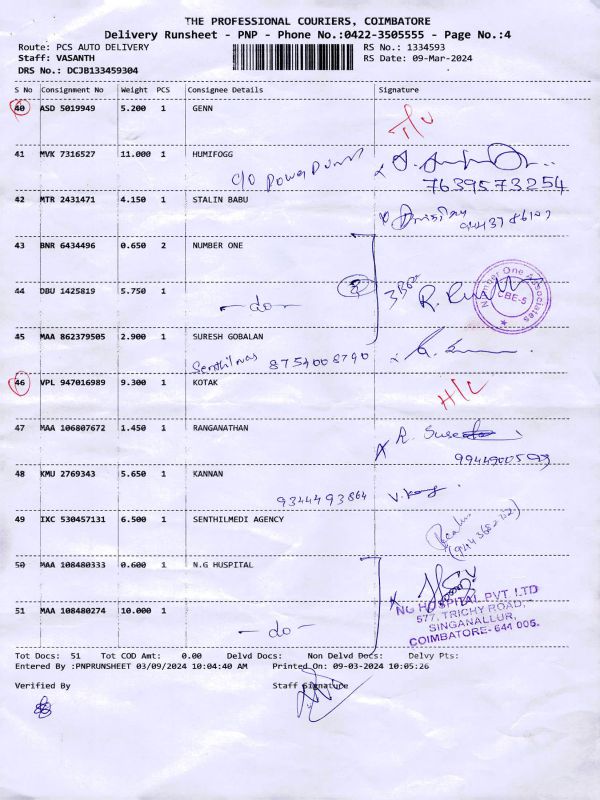 THE PROFESSIONAL COURIERS, COIMBATORE
Delivery Runsheet - PNP - Phone No.:0422-3505555 - Page No.:4
Route: PCS AUTO DELIVERY RS No.: 1334593
Staff: VASANTH RS Date: 09-Mar-2024
DRS No.: DCJB133459304
S No Consignment No Weight PCS Consignee Details Signature
40 ASD 5019949 5.200 1 GENN
41 MVK 7316527 11.000 1 HUMIFOGG
C/O
7639573254
42 MTR 2431471 4.150 1 STALIN BABU
43 BNR 6434496 0.650 2 NUMBER ONE
Number One Associates
CBE-5
44 DBU 1425819 5.750 1
- do -
45 MAA 862379505 2.900 1 SURESH GOBALAN
8754008790
46 VPL 947016989 9.300 1 KOTAK
47 MAA 106807672 1.450 1 RANGANATHAN
48 KMU 2769343 5.650 1 KANNAN
9344493864
49 IXC 530457131 6.500 1 SENTHILMEDI AGENCY
50 MAA 108480333 0.600 1 N.G HUSPITAL
NG HOSPITAL PVT LTD
577, TRICHY ROAD,
51 MAA 108480274 10.000 1
SINGANALLUR,
- do -
COIMBATORE- 641 005.
Tot Docs: 51 Tot COD Amt: 0.00 Delvd Docs: Non Delvd Docs: Delvy Pts:
Entered By :PNPRUNSHEET 03/09/2024 10:04:40 AM Printed On: 09-03-2024 10:05:26
Verified By Staff Signature